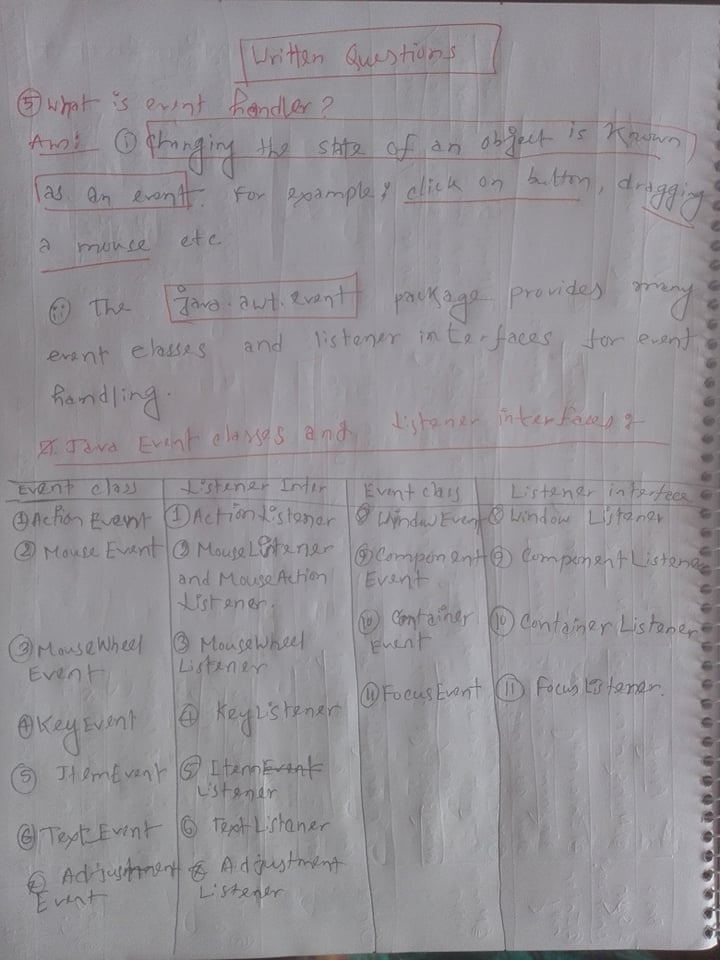 Written Questions
⑤ What is event handler?
Ans: ⓘ Changing the state of an object is known
as an event. For example: click on button, dragging
a mouse etc.
ⅱ The Java.awt.event package provides many
event classes and listener interfaces for event
handling.
Java Event classes and Listener interfaces:
Event class | Listener Inter | Event class | Listener interface
① Action Event ① ActionListener ⑧ Window Event ⑧ Window Listener
② Mouse Event ② MouseListener ⑨ Component ⑨ Component Listene
and MouseAction Event
Listener. ⑩ Container ⑩ Container Listener
Event
③ MouseWheel ③ MouseWheel
Event Listener ⑪ FocusEvent ⑪ FocusListener.
④ KeyEvent ④ KeyListener
⑤ ItemEvent ⑤ ItemEvent
Listener
⑥ Text Event ⑥ TextListener
⑦ Adjustment ⑦ Adjustment
Event Listener